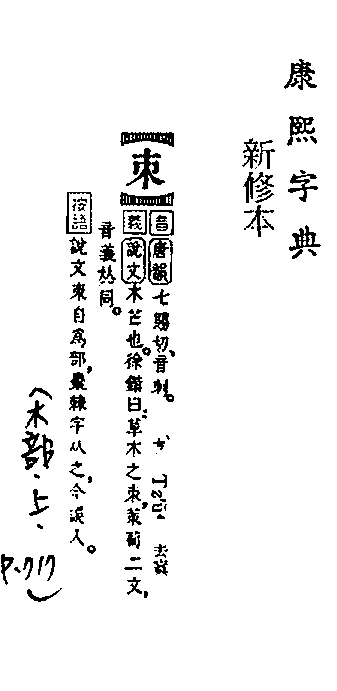 康熙字典
新修本
朿
音 唐韻 七賜切,音刺。 ㄘˋ Tzù 去寘
義 說文 木芒也。徐鍇曰:草木之朿,萊萴二文,
音義炏同。
按語 說文朿自為部,棗棘字从之,今誤入。
(木部.上.
P.717)